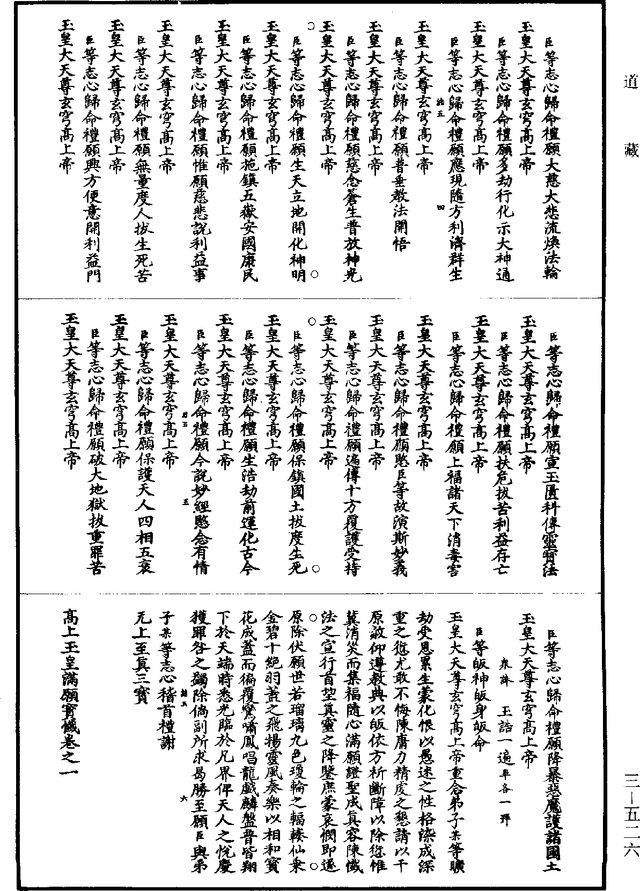 道藏
臣等志心歸命禮願大慈大悲流煥法輪
玉皇大天尊玄穹高上帝
臣等志心歸命禮願多劫行化示大神通
玉皇大天尊玄穹高上帝
臣等志心歸命禮願應現隨方利濟群生
玉皇大天尊玄穹高上帝
臣等志心歸命禮願普垂教法開悟
玉皇大天尊玄穹高上帝
臣等志心歸命禮願慈念蒼生普放神光
玉皇大天尊玄穹高上帝
臣等志心歸命禮願生天立地開化神明
玉皇大天尊玄穹高上帝
臣等志心歸命禮願施鎮五嶽安國康民
玉皇大天尊玄穹高上帝
臣等志心歸命禮願惟願慈悲說利益事
玉皇大天尊玄穹高上帝
臣等志心歸命禮願無量度人拔生死苦
玉皇大天尊玄穹高上帝
臣等志心歸命禮願興方便意開利益門
玉皇大天尊玄穹高上帝
臣等志心歸命禮願宣玉匱科傳靈寶法
玉皇大天尊玄穹高上帝
臣等志心歸命禮願扶危拔苦利益存亡
玉皇大天尊玄穹高上帝
臣等志心歸命禮願上福諸天下消毒害
玉皇大天尊玄穹高上帝
臣等志心歸命禮願愍臣等故演斯妙義
玉皇大天尊玄穹高上帝
臣等志心歸命禮願遍傳十方覆護受持
玉皇大天尊玄穹高上帝
臣等志心歸命禮願保鎮國土拔度生死
玉皇大天尊玄穹高上帝
臣等志心歸命禮願生浩劫前運化古今
玉皇大天尊玄穹高上帝
臣等志心歸命禮願今說妙經愍念有情
玉皇大天尊玄穹高上帝
臣等志心歸命禮願保護天人四相五衰
玉皇大天尊玄穹高上帝
臣等志心歸命禮願破大地獄拔重罪苦
玉皇大天尊玄穹高上帝
臣等志心歸命禮願降暴惡魔護諸國土
玉皇大天尊玄穹高上帝
玉誥一遍
臣等皈神皈身皈命
玉皇大天尊玄穹高上帝重念弟子某等曠
劫受恩累生蒙化恨以愚迷之性格深成深
重之愆尤敢不悔陳庸力精虔之懇請以干
原赦仰遵教典以皈依方祈斷障以除愆惟
冀消災而集福隨心滿願證聖成真容陳懺
法之宣行首望真靈之降鑒庶蒙哀憫即遂
原除伏願世若瑠璃九色瓊輪之輻輳仙乘
金碧十絕羽蓋之飛揚靈風奏樂以相和寶
花成蓋而徧覆鸞嘯鳳唱龍戲麟盤普皆翔
下於天端時悉光臨於凡界俾天人之悅慶
獲罪咎之蠲除倘副所求曷勝至願臣與弟
子某等志心稽首禮謝
无上至真三寶
高上玉皇滿願寶懺卷之一
三—五二六